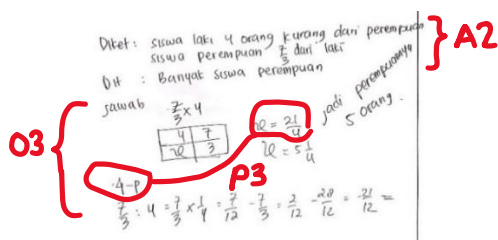 Diket : siswa laki 4 orang kurang dari perempuan
siswa perempuan 7/3 dari laki
A2
Dit : Banyak siswa perempuan
Jawab
7/3 x 4
4 7
x 3
x = 21/4
x = 5 1/4
jadi perempuannya
5 orang.
O3
4-p
P3
7/3 : 4 = 7/3 x 1/4 = 7/12 - 7/3 = 7/12 - 28/12 = -21/12 =